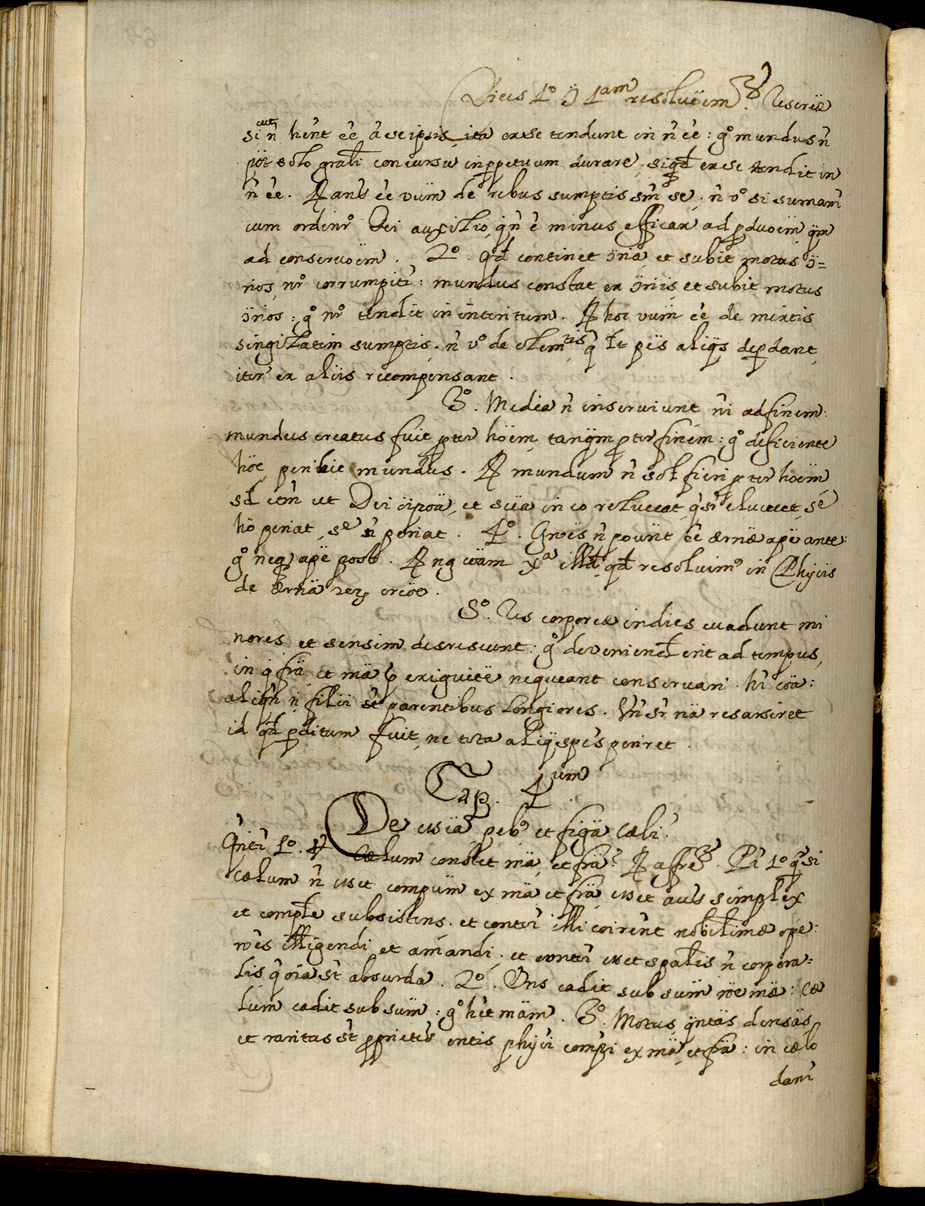 Dices 1º ɔ̃ 1am resolutem. Res creatæ
sicut ñ hẽnt ẽe à seipsis, ita ex se tendunt in ñ ẽe: gº mundus ñ
solo grali concursu in ppetuum durare, siqd ex se tendit in
ñ ẽe. R ants ẽe vum de rebus sumptis sm se, ñ vº si sumant
cum ordinº Dei auxilio, qn ẽ minus efficax ad pduoem, qm
ad conservoem. 2º. Qd continet ɔria et subit motus ɔ=
rios, nr corrumpit: mundus constat ex ɔriis et subit motus
ɔrios: gº nr tendit in interitum. R hoc vum ẽe de mixtis
singilatim sumptis, ñ vº de elemtis, q lt p eis aliqs depdant,
itr ex aliis recompensant.
3º. Media ñ inserviunt ni ad finem:
mundus creatus fuit pter hoem, tanqm pter finem: gº deficiente
hoe peribit mundus. R mundum ñ sol fieri pter hoem
sd etm ut Dei oipoa, et scia in eo reluceat, q sr elucet, se
ho periat, se ñ periat. 4º. Gnoes ñ pount ẽe ærnæ a pe ante:
gº neq a pe post. R ng coam xa illd qd resoluimº in Phyis
de ærna rerz creoe.
5º. Res corporeæ indies evadunt mi
nores et sensim decrescunt: gº deveniend erit ad tempus,
in q fra et ma p exiguitte nequeant conservari. Nr coa:
aliqn ñ filii st parentibus longiores. Vn sr na resarsiret
id qd pditum fuit, ne tota aliq spes periret.
Cap. 4um
De essia, peb9 et figa cæli.
Qriti 1º. R cælum constet ma, et fra? R affre. Pr 1º q si
cælum ñ esset compum ex ma et fra, esset acts simplex
et comple subsistens, et contr illi coirent nobilimæ ope:
roes illigendi et amandi, et contr esset spalis ñ corpora=
lis q oia st absurda. 2º. Ens cadit sub sum roe ma: cæ
lum cadit sub sum: gº het mam. 3º. Motus qntas densas
et raritas st pprietes entis phyci compi ex ma, et fra: in cælo
dant